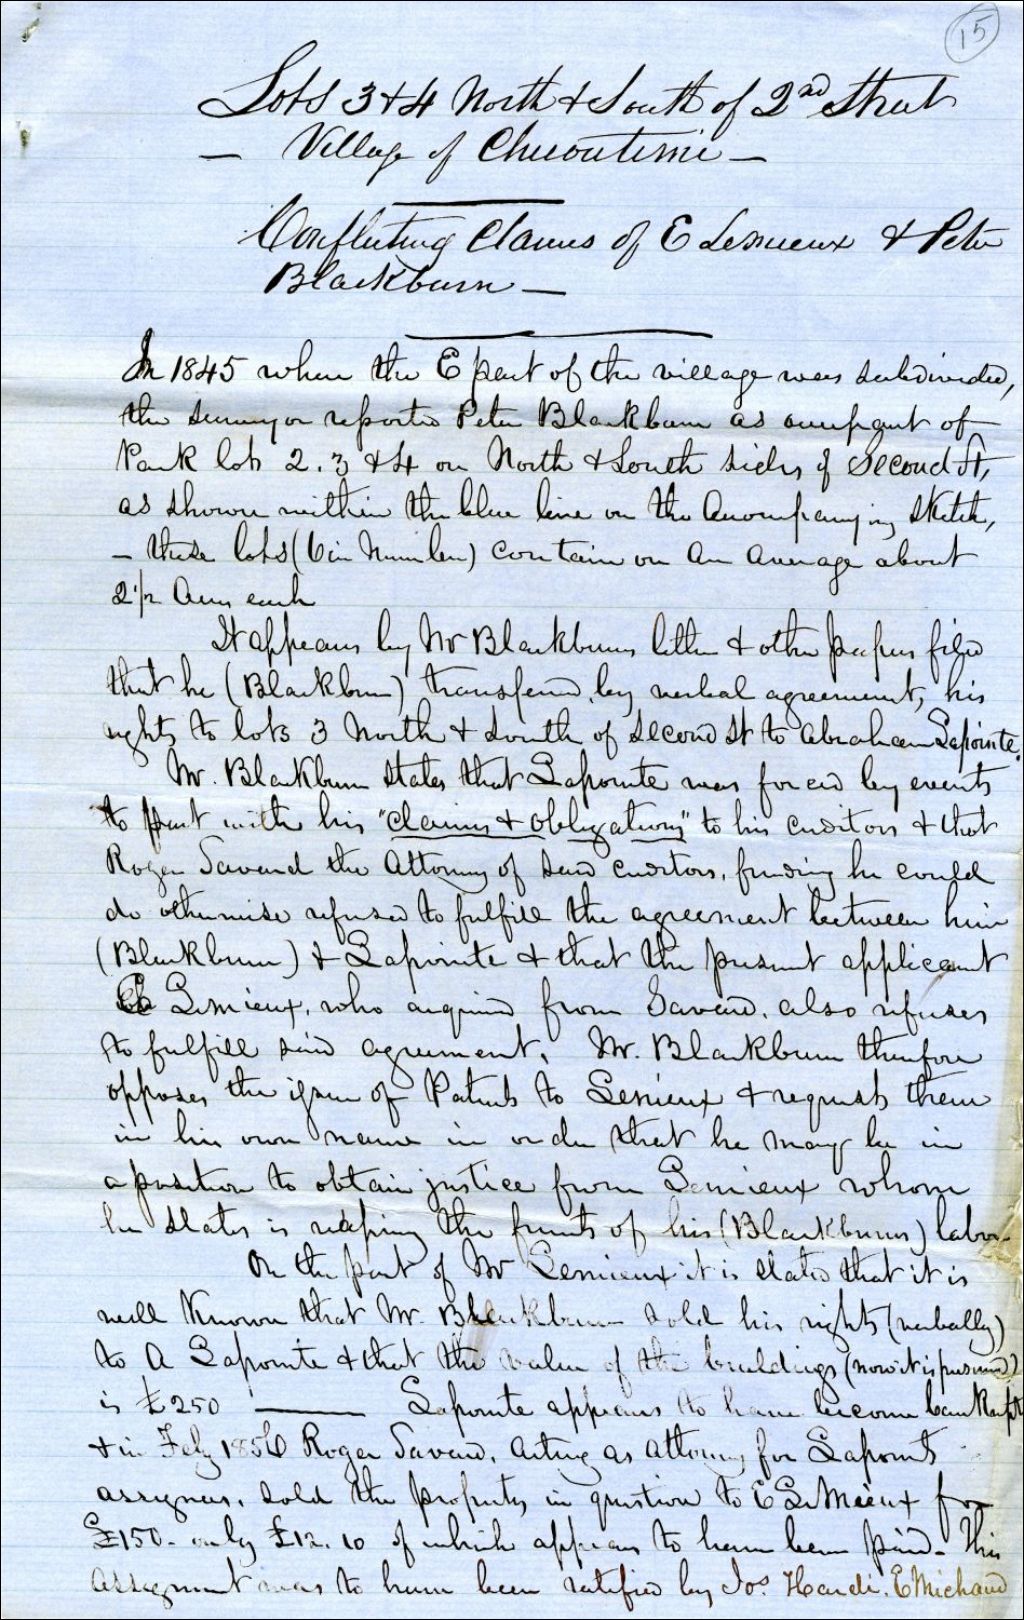 15
Lots 3 & 4 North & South of 2nd Street
— Village of Chicoutimi —
Conflicting Claims of E Lemieux & Peter
Blackburn —
In 1845 when the E part of the village was subdivided,
the surveyor reported Peter Blackburn as occupant of
Park lots 2. 3 & 4 on North & South sides of Second St,
as shown within the blue line on the accompanying sketch,
— these lots (6 in Number) contain on an average about
2 1/2 Acres each
It appears by Mr Blackburns letter & other papers filed
that he (Blackburn) transferred by verbal agreement, his
rights to lots 3 North & South of Second St to Abraham Lapointe.
Mr. Blackburn states that Lapointe was forced by events
to part with his "claims & obligations" to his creditors & that
Roger Savard the Attorney of said creditors, finding he could
do otherwise refused to fulfill the agreement between him
(Blackburn) & Lapointe & that the present applicant
E Lemieux, who acquired from Savard, also refuses
to fulfill said agreement. Mr. Blackburn therefore
opposes the issue of Patents to Lemieux & requests them
in his own name in order that he may be in
a position to obtain justice from Lemieux whom
he states is reaping the fruits of his (Blackburns) labor.
On the part of Mr Lemieux it is stated that it is
well Known that Mr. Blackburn sold his rights (verbally)
to A Lapointe & that the value of the buildings (now it is presumed)
is £250 — Lapointe appears to have become bankrupt
& in Feby 1856 Roger Savard, acting as attorney for Lapointe
assignees, sold the property in question to E LeMieux for
£150 - only £12. 10 of which appears to have been paid - This
assignment was to have been ratified by Jos. Hardi, E Michaud